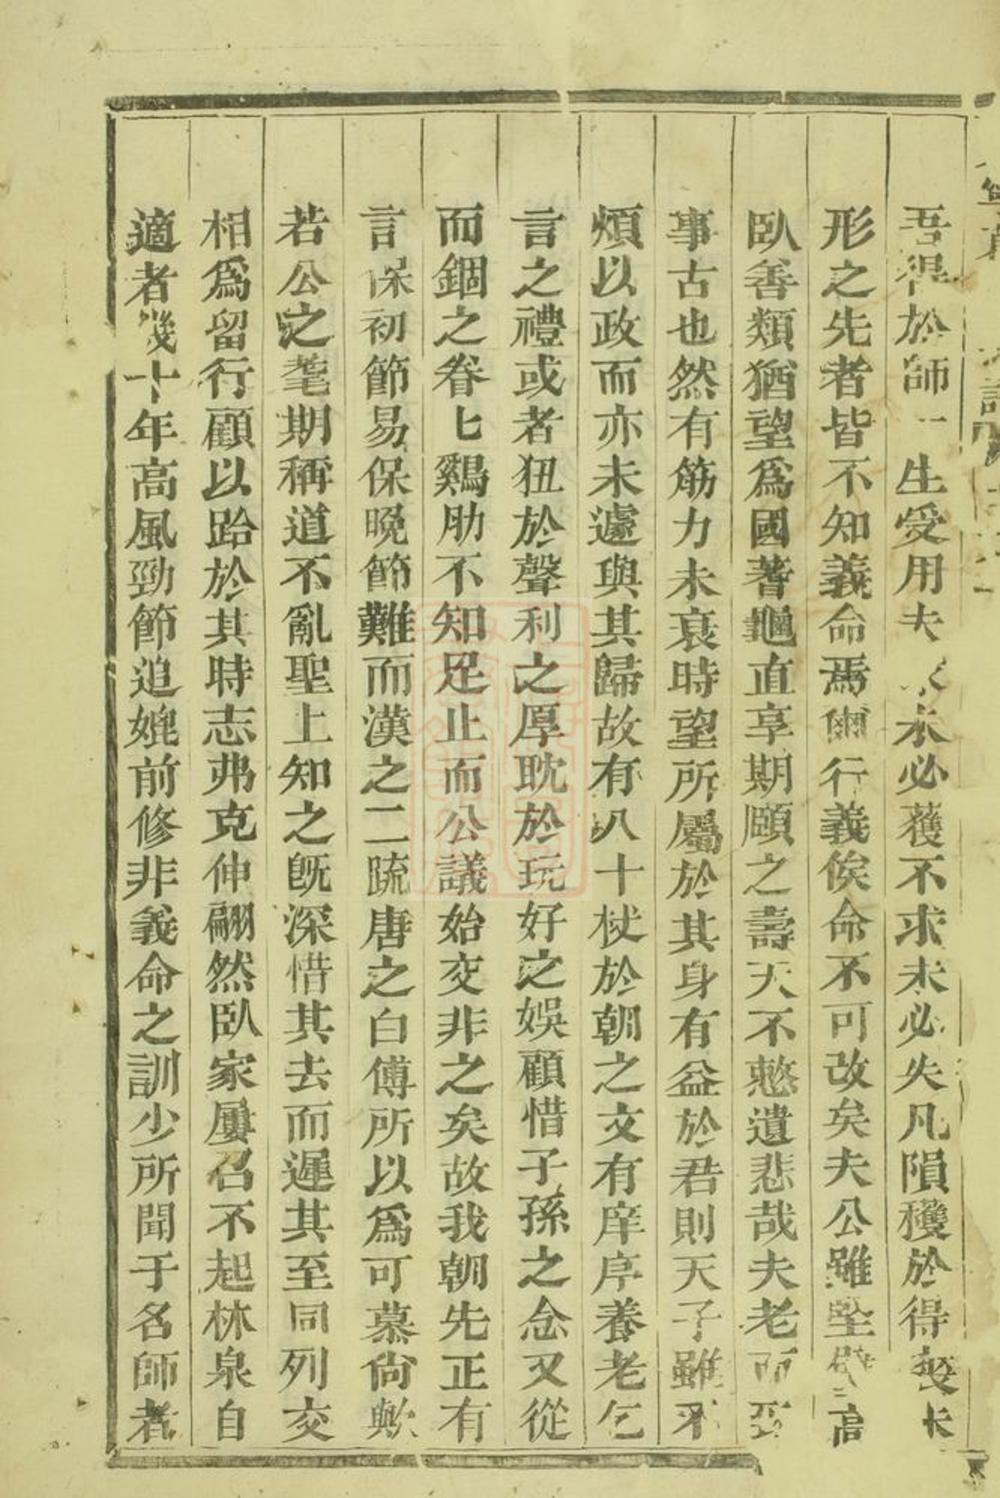 吾得於師一生受用夫求未必獲不求未必失凡隕穫於得喪
形之先者皆不知義命焉爾行義俟命不可改矣夫公雖堅高
臥善類猶望爲國蓍龜直享期頤之壽天不憖遺悲哉夫老而
事古也然有筋力未衰時望所屬於其身有益於君則天子雖不
煩以政而亦未遽與其歸故有八十杖於朝之文有庠序養老乞
言之禮或者狃於聲利之厚耽於玩好之娛顧惜子孫之念又從
而錮之眷七鷄肋不知足止而公議始交非之矣故我朝先正有
言保初節易保晚節難而漢之二疏唐之白傅所以爲可慕尚歟
若公之耄期稱道不亂聖上知之旣深惜其去而遲其至同列交
相爲留行顧以跆於其時志弗克伸翩然臥家屢召不起林泉自
適者幾十年高風勁節追媲前修非義命之訓少所聞于名師者